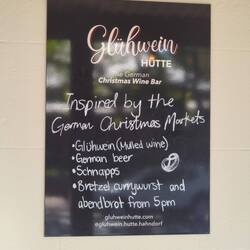 Glühwein
HÜTTE
The German
Christmas Wine Bar
Inspired by the
German Christmas Markets
• Glühwein (Mulled wine)
• German beer
• Schnapps
• Bretzel, currywurst and
abendbrot from 5pm
gluhweinhutte.com
@gluhwein.hutte.hahndorf